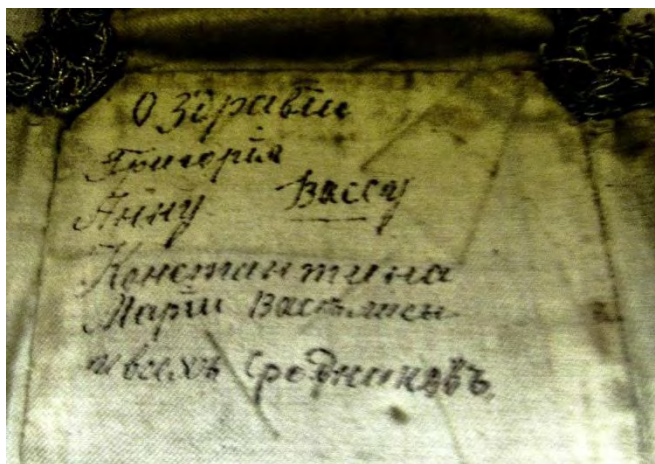 О Здравіи
Григорія
Анну Вассу
Константина
Маріи
и всехъ сродниковъ